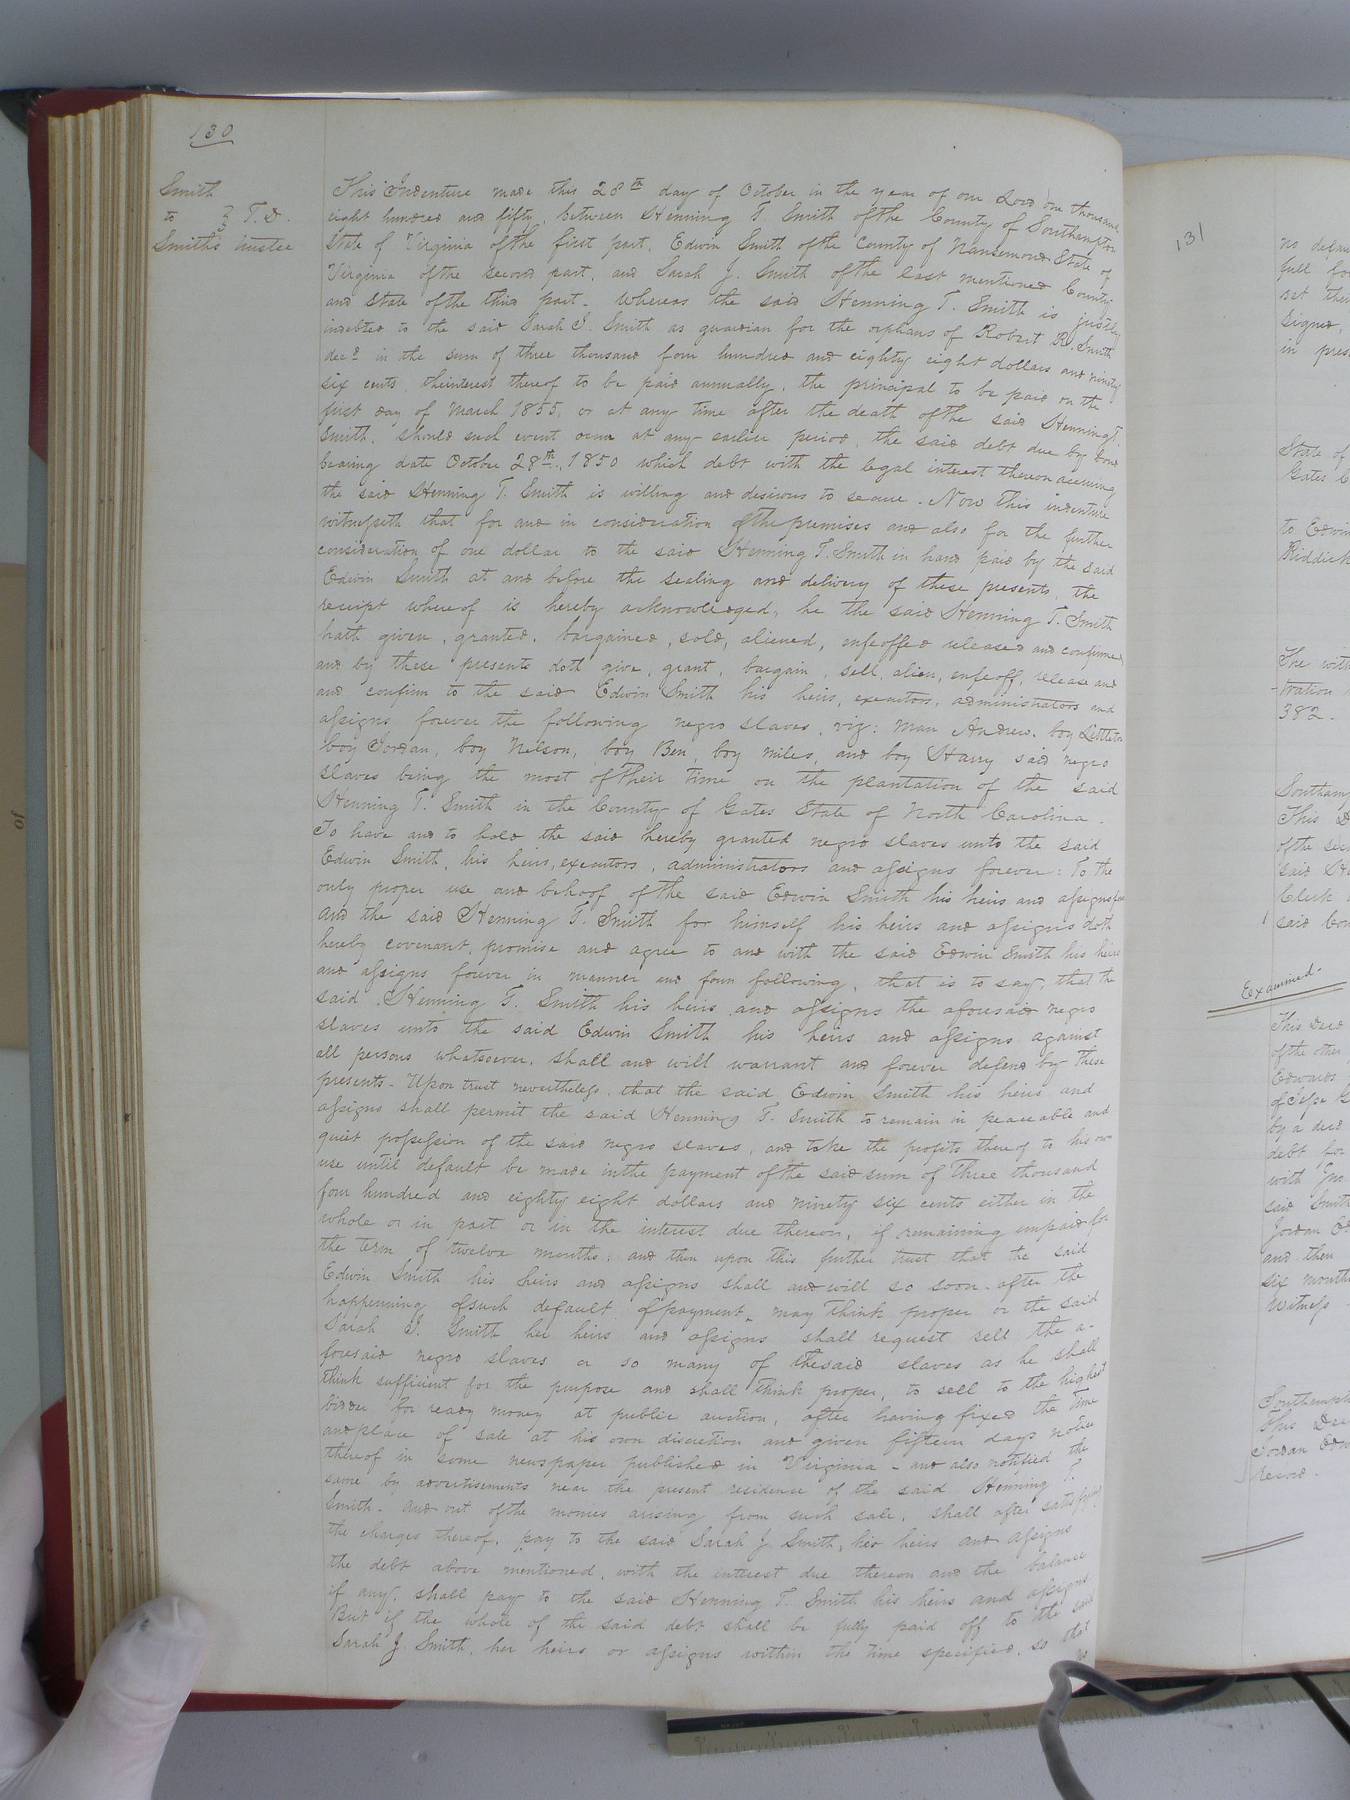 130
Smith
to } T. D.
Smith's trustee
This Indenture made this 28th day of October in the year of our Lord one thousand
eight hundred and fifty, between Henning T. Smith of the County of Southampton
State of Virginia of the first part, Edwin Smith of the County of Nansemond State of
Virginia of the second part, and Sarah J. Smith of the last mentioned County
and State of the third part. Whereas the said Henning T. Smith is justly
indebted to the said Sarah J. Smith as guardian for the orphans of Robert R. Smith
decd in the sum of three thousand four hundred and eighty eight dollars and ninety
six cents, the interest thereof to be paid annually, the principal to be paid on the
first day of March 1855, or at any time after the death of the said Henning T.
Smith, should such event occur at any earlier period, the said debt due by bond
bearing date October 28th, 1850 which debt with the legal interest thereon accruing
the said Henning T. Smith is willing and desirous to secure. Now this indenture
witnesseth that for and in consideration of the premises and also for the further
consideration of one dollar to the said Henning T. Smith in hand paid by the said
Edwin Smith at and before the sealing and delivery of these presents, the
receipt whereof is hereby acknowledged, he the said Henning T. Smith
hath given, granted, bargained, sold, aliened, enfeoffed released and confirmed
and by these presents doth give, grant, bargain, sell, alien, enfeoff, release and
and confirm to the said Edwin Smith his heirs, executors, administrators and
assigns forever the following negro slaves, viz: man Andrew, boy Littleton
boy Jordan, boy Nelson, boy Ben, boy Miles, and boy Harry said negro
slaves being the most of their time on the plantation of the said
Henning T. Smith in the County of Gates State of North Carolina.
To have and to hold the said hereby granted negro slaves unto the said
Edwin Smith, his heirs, executors, administrators and assigns forever: To the
only proper use and behoof of the said Edwin Smith his heirs and assigns
And the said Henning T. Smith for himself his heirs and assigns doth
hereby covenant, promise and agree to and with the said Edwin Smith his heirs
and assigns forever in manner and form following, that is to say, that the
said Henning T. Smith his heirs and assigns the aforesaid negro
slaves unto the said Edwin Smith his heirs and assigns against
all persons whatsoever, shall and will warrant and forever defend by these
presents. Upon trust nevertheless, that the said Edwin Smith his heirs and
assigns shall permit the said Henning T. Smith to remain in peaceable and
quiet possession of the said negro slaves, and take the profits thereof to his own
use until default be made in the payment of the said sum of three thousand
four hundred and eighty eight dollars and ninety six cents either in the
whole or in part or in the interest due thereon, if remaining unpaid for
the term of twelve months: and then upon this further trust that he the said
Edwin Smith his heirs and assigns shall and will so soon after the
happening of such default of payment may think proper or the said
Sarah J. Smith her heirs and assigns shall request sell the a-
foresaid negro slaves or so many of the said slaves as he shall
think sufficient for the purpose and shall think proper, to sell to the highest
bidder for ready money at public auction, after having fixed the time
and place of sale at his own discretion and given fifteen days notice
thereof in some newspaper published in Virginia - and also notified the
same by advertisements near the present residence of the said Henning T.
Smith. And out of the monies arising from such sale, shall after satisfying
the charges thereof, pay to the said Sarah J. Smith, her heirs and assigns
the debt above mentioned, with the interest due thereon and the balance
if any, shall pay to the said Henning T. Smith his heirs and assigns
But if the whole of the said debt shall be fully paid off to the said
Sarah J. Smith, her heirs or assigns within the time specified, so that
no
131
full
set
Signed,
in
State of
Gates
to Edwin
Riddick
The
tration
382.
This
of the
said
Clerk
said
Examined.
This Deed
of the other
Edwards
by a deed
debt for
with Jno
said Smith
Jordan
and then
six months
Witness
This
Jordan
Record.